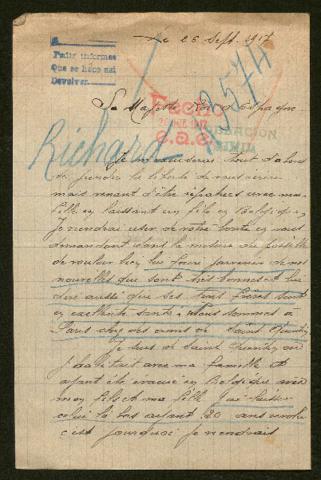 Le 26 Sept. 1917
Pedir informes
Que se hace así
Devolver
Sa Majesté Roi d'Espagne
Fecho
e.a.e.
33574
Richard
Je m'excuserai tout d'abord
de prendre la liberté de vous écrire
mais venant d'être rapatriés avec ma
fille en laissant un fils en Belgique
Je viendrai user de votre bonté en vous
demandant dans la mesure du possible
de vouloir bien lui faire parvenir de nos
nouvelles que sont très bonnes et lui
dire aussi que ses trois frères sont
en excellente santé. Nous sommes à
Paris chez des amis de Saint Quentin
Je suis de Saint Quentin où
j'habitais avec ma famille et
ayant été évacué en Belgique avec
mon fils et ma fille j'ai laissé
celui là bas ayant 20 ans
c'est pourquoi je viendrais